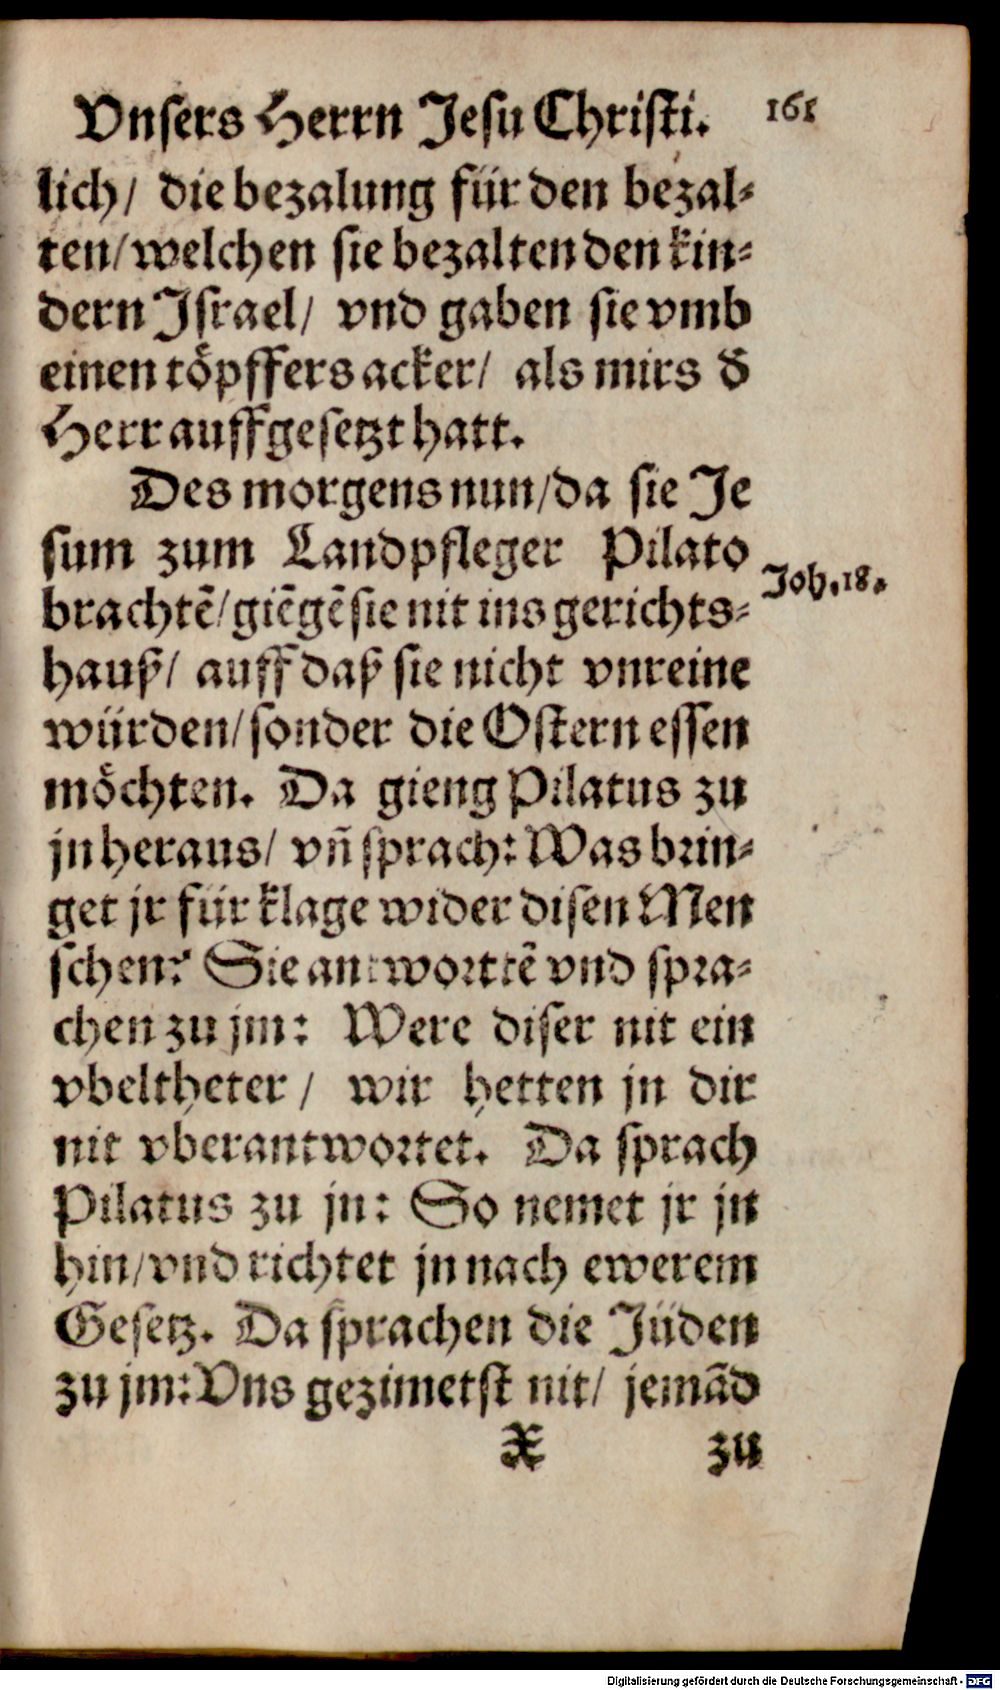 Vnsers Herrn Jesu Christi. 161
lich/ die bezalung für den bezal-
ten/welchen sie bezalten den kin-
dern Israel/ vnd gaben sie vmb
einen töpffers acker/ als mirs d̄
Herr auffgesetzt hatt.
Des morgens nun/da sie Je
sum zum Landpfleger Pilato
Joh. 18.
brachtē/giēgē sie nit ins gerichts-
hauß/ auff daß sie nicht vnreine
würden/sonder die Ostern essen
möchten. Da gieng Pilatus zu
jn heraus/ vñ sprach: Was brin-
get jr für klage wider disen Men
schen? Sie antworttē vnd spra-
chen zu jm: Were diser nit ein
vbeltheter/ wir hetten jn dir
nit vberantwortet. Da sprach
Pilatus zu jn: So nemet jr jn
hin/vnd richtet jn nach ewerem
Gesetz. Da sprachen die Jüden
zu jm: Vns gezimetst nit/ jemād
X zu
Digitalisierung gefördert durch die Deutsche Forschungsgemeinschaft - DFG